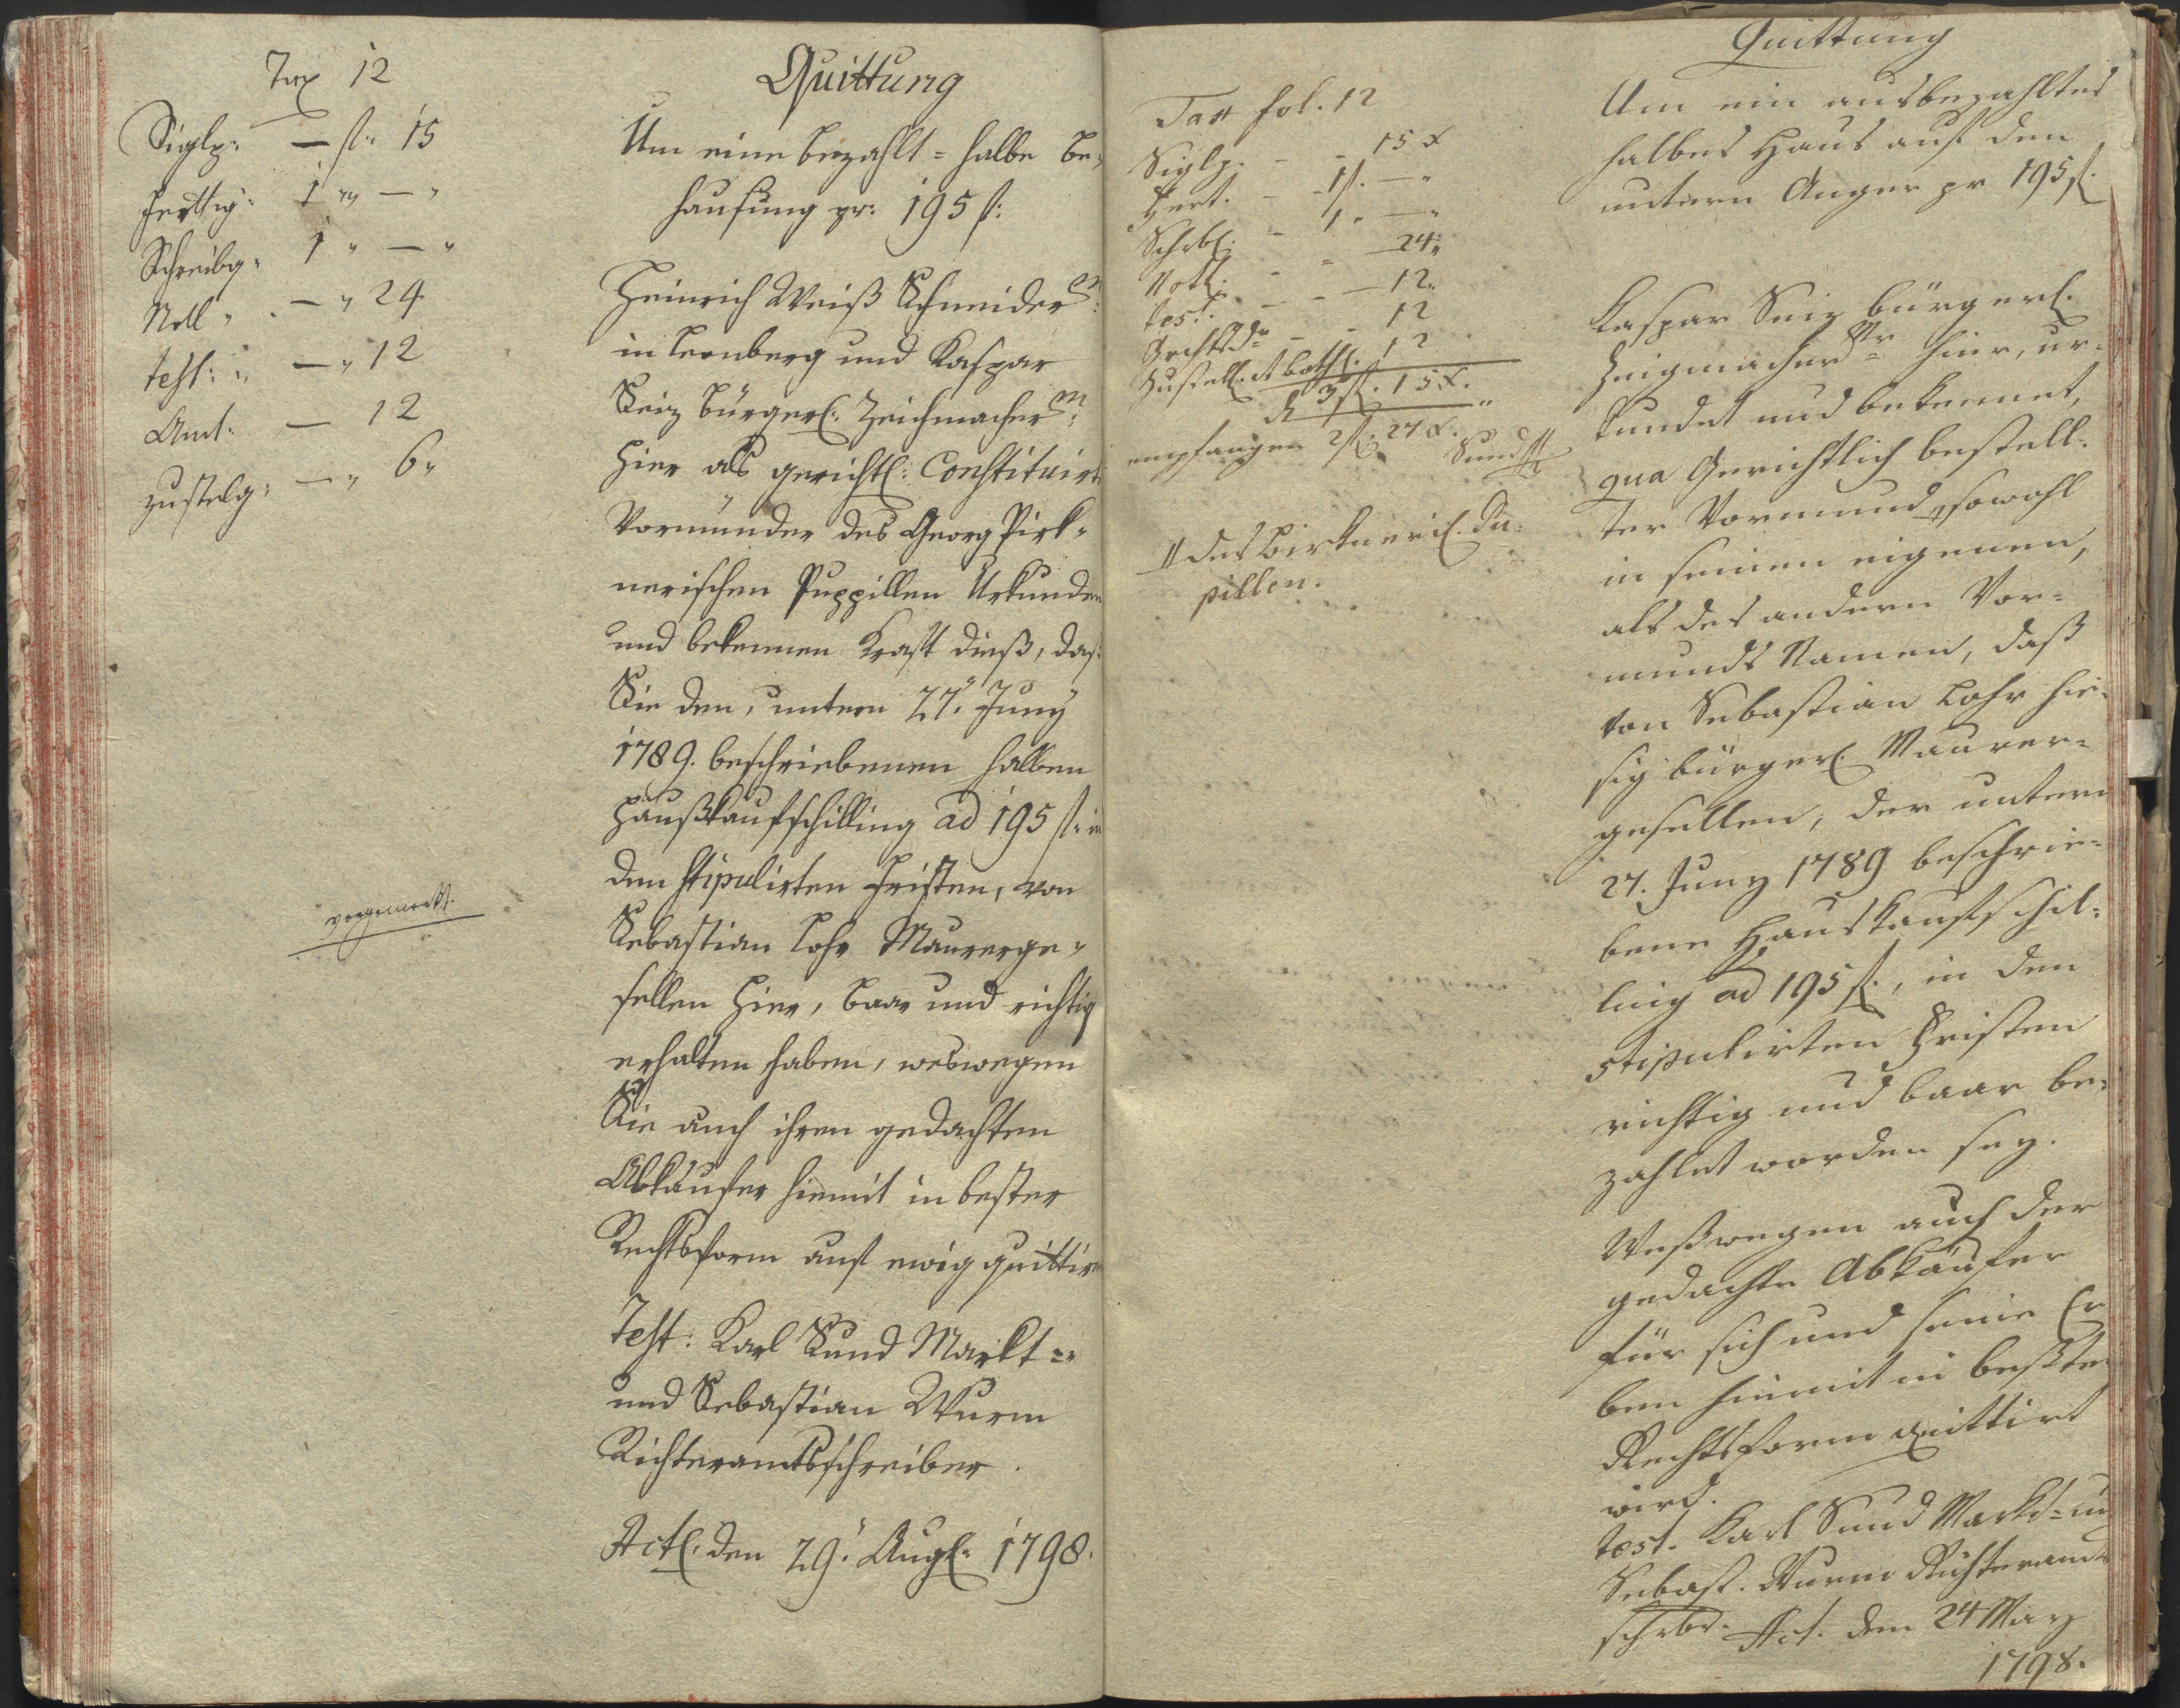 Tax 12
Siglg: — fl: 15
Fertig: 1 " — "
Schreibg: 1 " — "
Noll " — " 24
test: " — " 12
Amt: — 12
zustelg: — " 6 "
vorgemerkt.
Quittung
Um eine bezahlt = halbe Be„
hausung pr: 195 f:
Heinrich Weiß Schneider M:
in Leonberg und Kaspar
Seiz bürgerl: Zeichmacher M:
hier als gerichtl: Constituirte
Vormünder des Georg Pirk„
nerischen Puppillen Urkunden
und bekennen Kraft dieß, daß
Sie den, untern 27. Juny
1789. beschriebenen halben
Haußkaufschilling ad 195 f: in
den stipulirten Fristen, von
Sebastian Lohr Maurerge„
sellen hier, baar und richtig
erhalten haben, weswegen
Sie auch ihren gedachten
Abkäufer hiemit in bester
Rechtsform auf ewig quittiren
Test: Karl Sund Markt =
und Sebastian Wurm
Richteramtsschreiber.
Actl. den 29. Augl: 1798.
Tax fol. 12
Siglg. - - 15 x
Fert. - - 1 f. — "
Schrbl. - 1 " — "
Noth. - - 24 "
test. - - — 12 "
Grchtsd. - - 12
Zustell. et Both. 12
3 f. 15 x.
empfangen 2 f. 27 x.
Sund
// des Birknerischl. Pu=
pillen.
Quittung
Um ein ausbezahltes
halbes Haus auf den
untern Anger pr 195 f.
Kaspar Seiz bürgerl.
Zeigmacher Mr hier, ur=
kundet und bekennet,
qua Gerichtlich bestell=
ter Vormund // sowohl
in seinen eigenen,
als des andern Vor=
munds Namen, daß
von Sebastian Lohr hie=
sig bürgerl. Maurer=
gesellen, der untern
27. Juny 1789 beschrie=
bene Hauskaufschil=
ling ad 195 f., in den
stipulirten Fristen
richtig und baar be=
zahlet worden sey.
Weßwegen auch der
gedachte Abkäufer
für sich und seine Er
ben hiemit in beßter
Rechtsform quittirt
wird.
test. Karl Sund Markt= und
Sebast. Wurm Richteramts
schrbr. Act. den 24 May
1798.